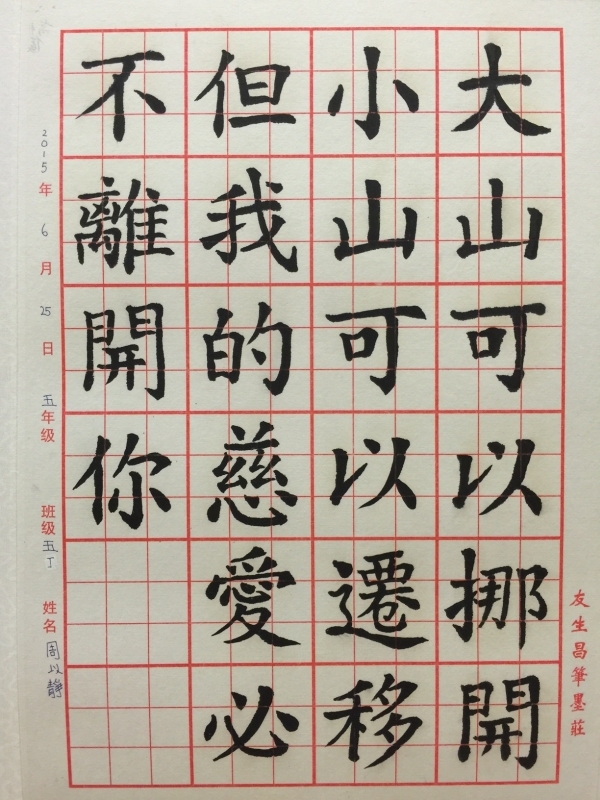 大山可以挪開
小山可以遷移
但我的慈愛必
不離開你
友生昌筆墨莊
2015年6月25日 五年级 班级五丁 姓名周以靜